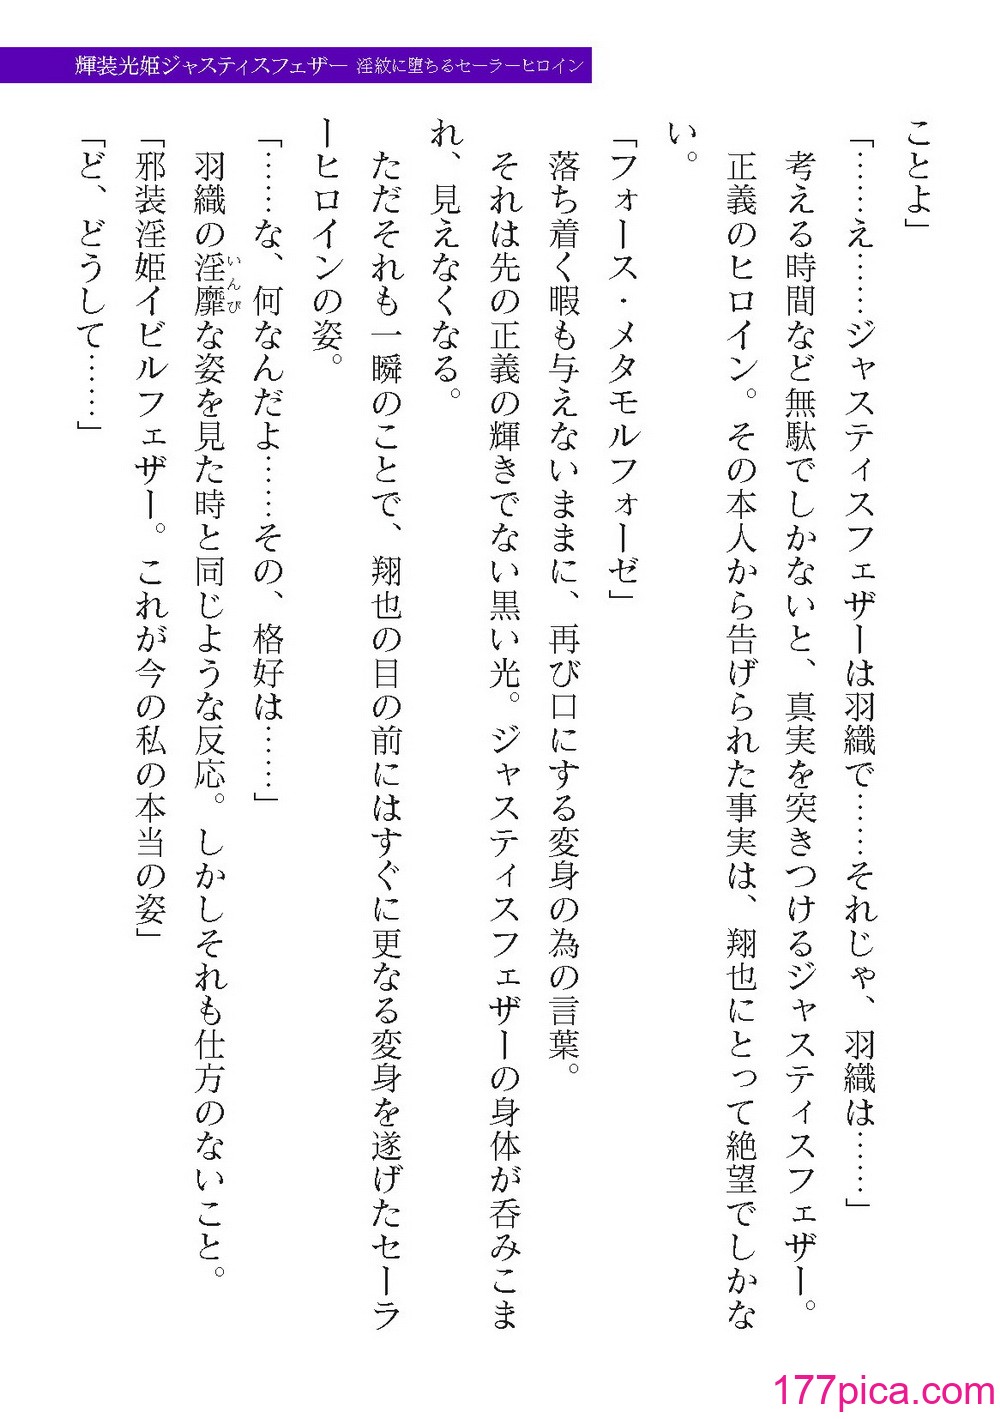 輝装光姫ジャスティスフェザー 淫紋に堕ちるセーラーヒロイン
ことよ」
「……え……ジャスティスフェザーは羽織で……それじゃ、羽織は……」
考える時間など無駄でしかないと、真実を突きつけるジャスティスフェザー。
正義のヒロイン。その本人から告げられた事実は、翔也にとって絶望でしかな
い。
「フォース・メタモルフォーゼ」
落ち着く暇も与えないままに、再び口にする変身の為の言葉。
それは先の正義の輝きでない黒い光。ジャスティスフェザーの身体が呑みこま
れ、見えなくなる。
ただそれも一瞬のことで、翔也の目の前にはすぐに更なる変身を遂げたセーラ
ーヒロインの姿。
「……な、何なんだよ……その、格好は……」
羽織の淫靡な姿を見た時と同じような反応。しかしそれも仕方のないこと。
いんび
「邪装淫姫イビルフェザー。これが今の私の本当の姿」
「ど、どうして……」
177pica.com